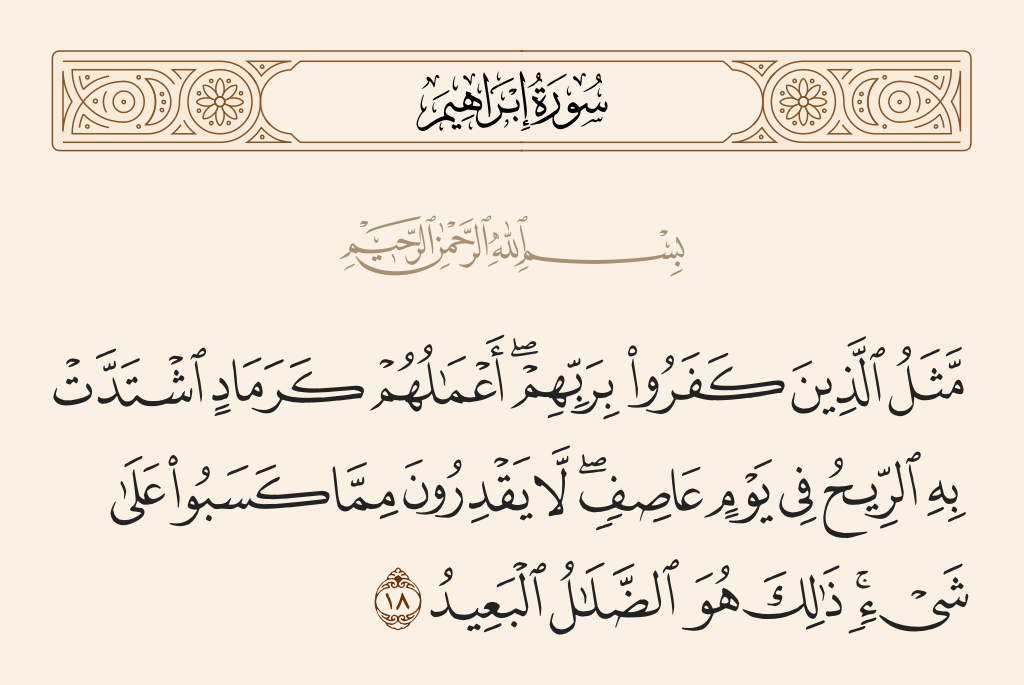 سُورَةُ إِبْرَاهِيمَ
بِسْمِ ٱللَّهِ ٱلرَّحْمَٰنِ ٱلرَّحِيمِ
مَّثَلُ ٱلَّذِينَ كَفَرُوا۟ بِرَبِّهِمْ ۖ أَعْمَٰلُهُمْ كَرَمَادٍ ٱشْتَدَّتْ
بِهِ ٱلرِّيحُ فِى يَوْمٍ عَاصِفٍ ۖ لَّا يَقْدِرُونَ مِمَّا كَسَبُوا۟ عَلَىٰ
شَىْءٍ ۚ ذَٰلِكَ هُوَ ٱلضَّلَٰلُ ٱلْبَعِيدُ ١٨